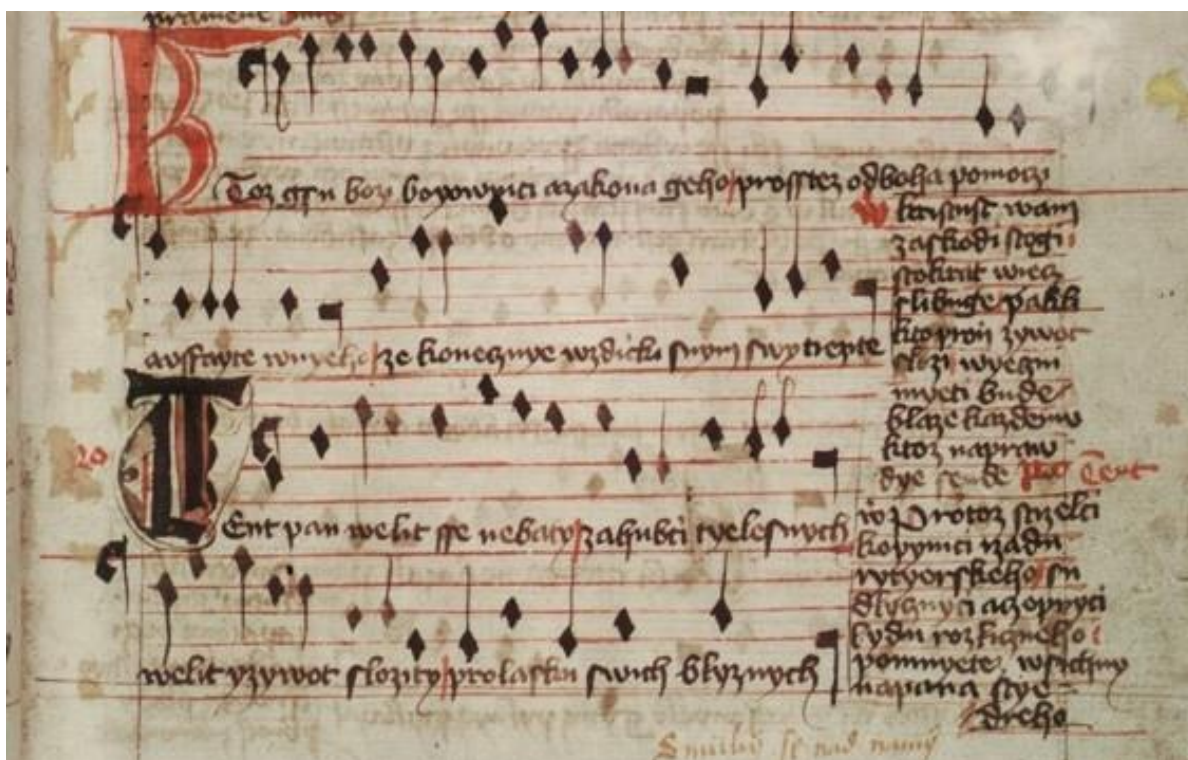 Ktoz gsu bozy boyownici azakona geho prosstez odboha pomoczi
auffayte wnyeho ze konecznye wzdicki snym swytiezyte
Tent pan welit sse nebaty zahubci tyelesnych
welit yzywot slozity pro lasku swich blyznych
kristust wam
zasskodi stogi
stokrat wiecz
slibuge pakli
kto pron zywot
slozi wyeczni
myeti bude
blaze kazdemu
ktoz napraw
dye sende Tent
Protoz strzelci
kopynici rzadu
rytyerskeho su
dlicznyci aczepnyci
lydu rozliczneho
pomnyete wsichny
napana stye
dreho
Smiluj se nad namy